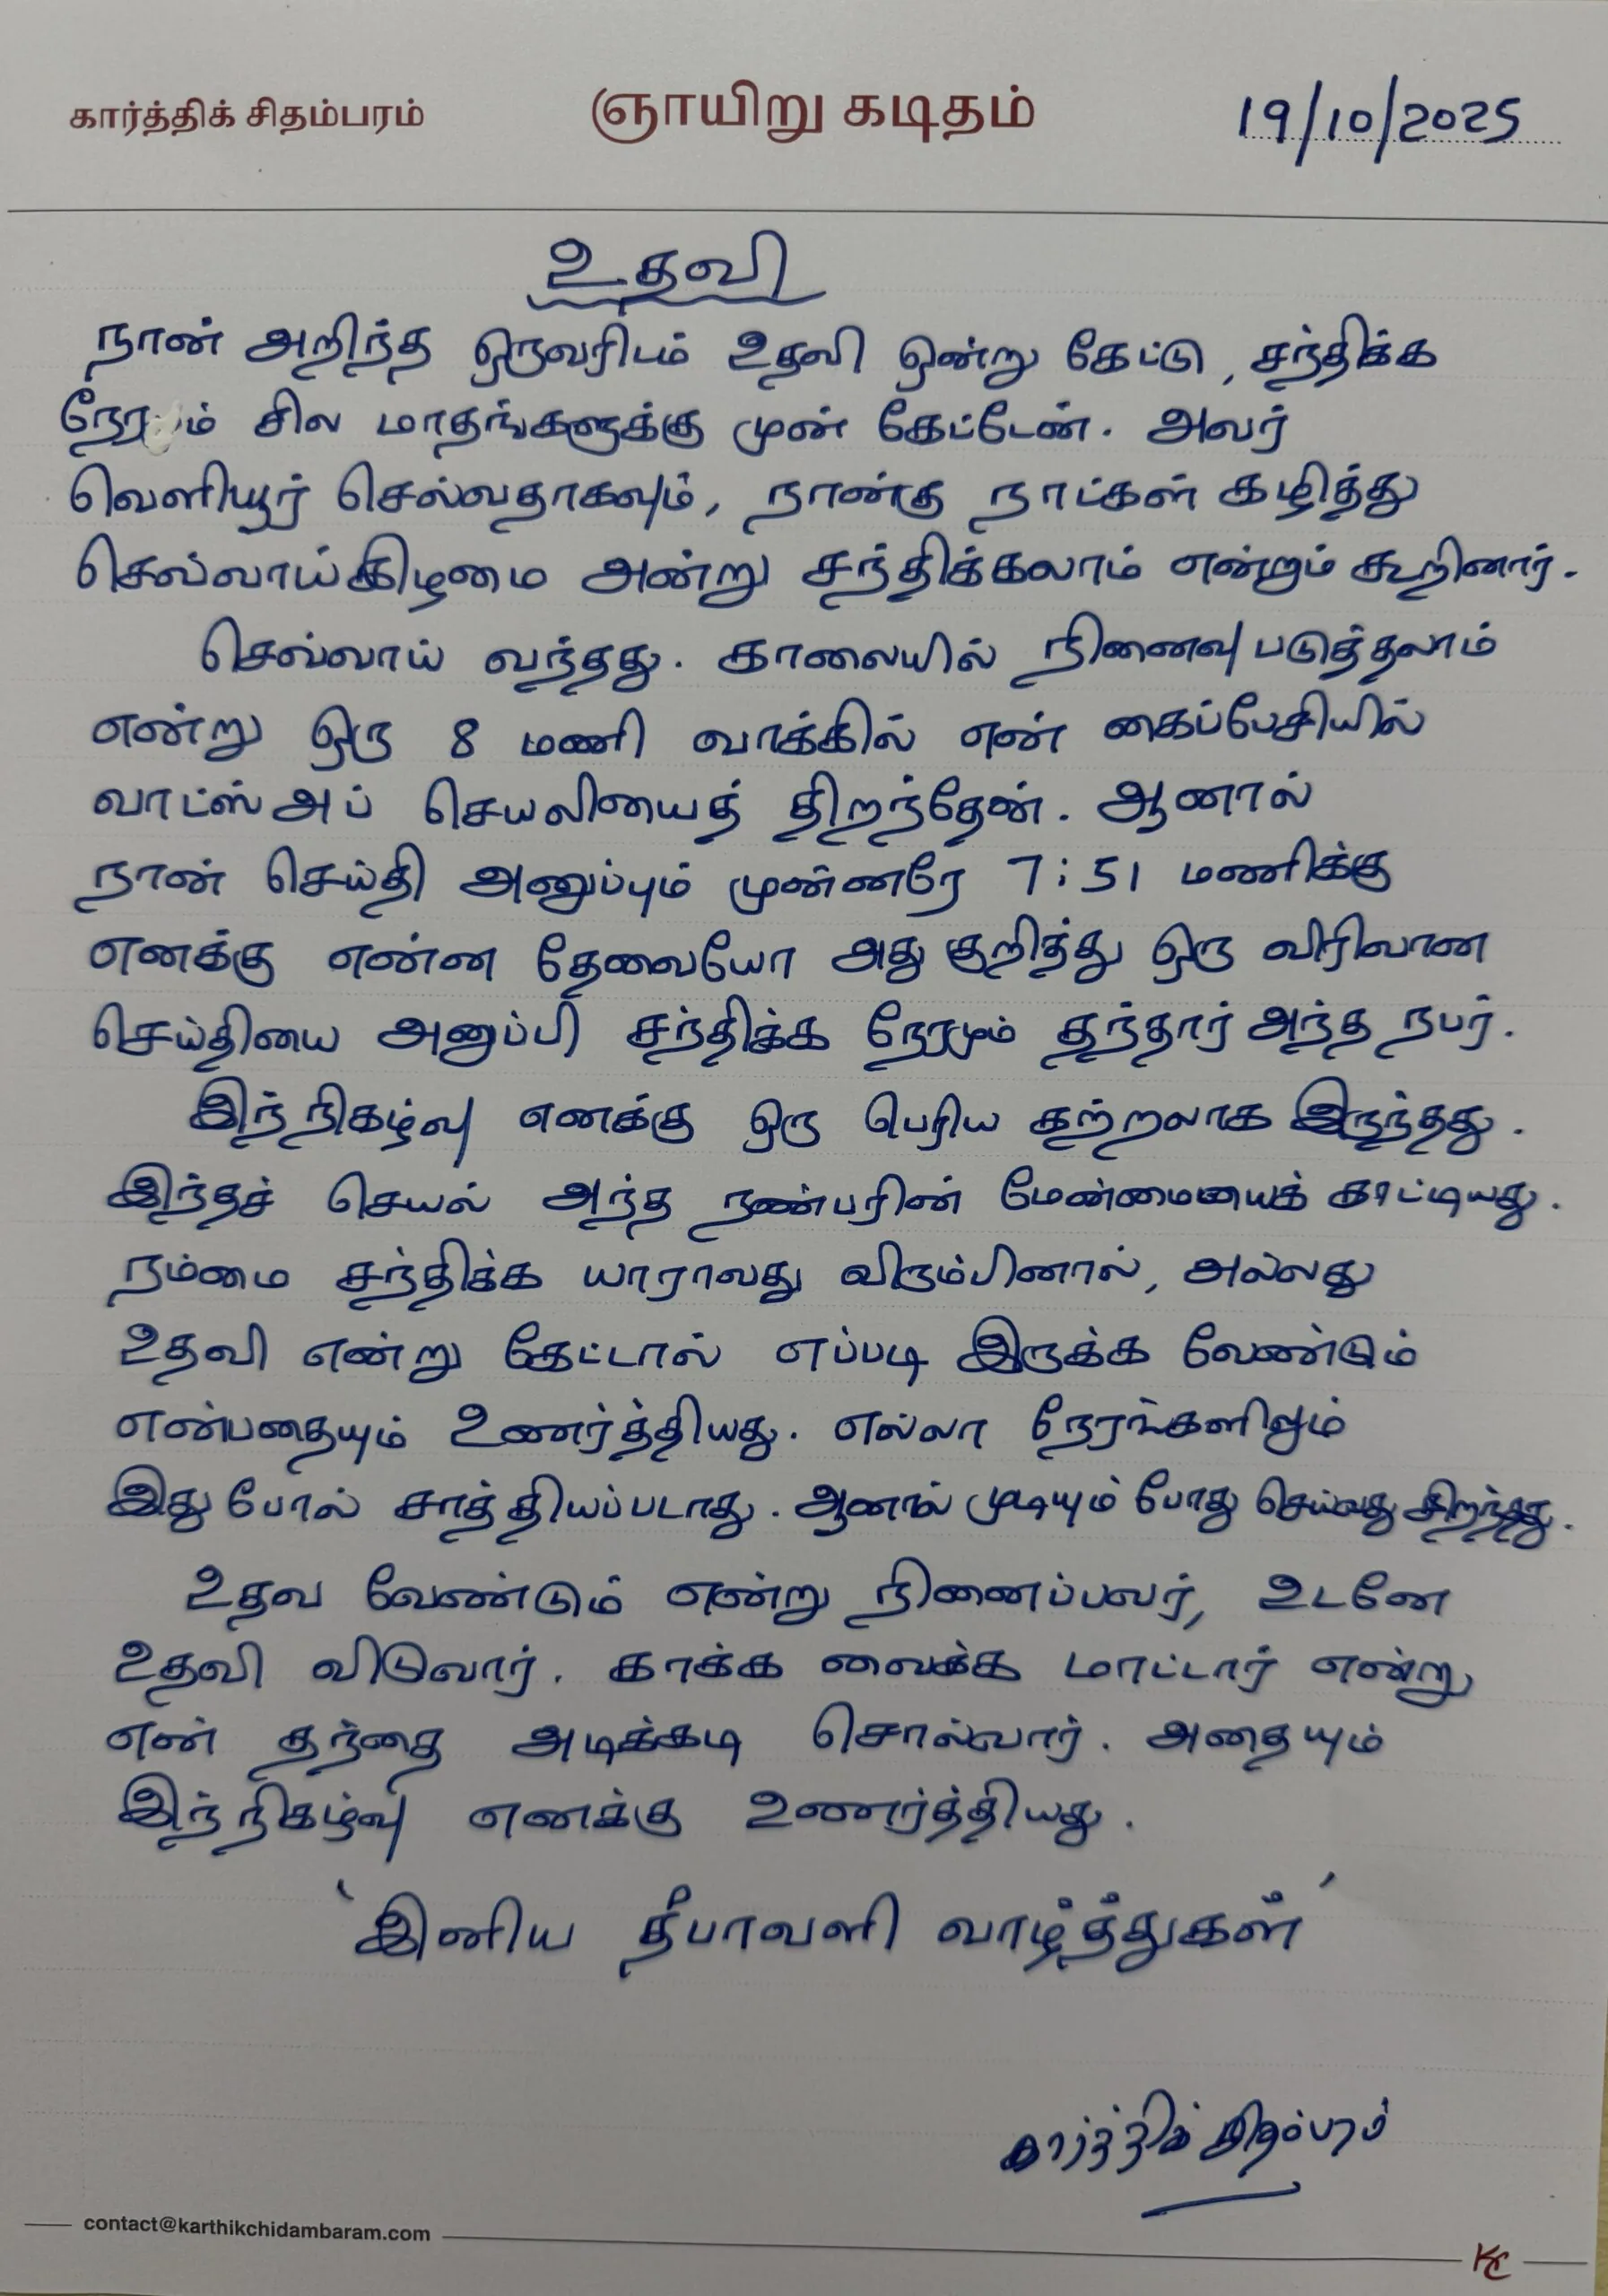 கார்த்திக் சிதம்பரம் ஞாயிறு கடிதம் 19/10/2025
உதவி
நான் அறிந்த ஒருவரிடம் உதவி ஒன்று கேட்டு, சந்திக்க
நேரம் சில மாதங்களுக்கு முன் கேட்டேன். அவர்
வெளியூர் செல்வதாகவும், நான்கு நாட்கள் கழித்து
செவ்வாய்கிழமை அன்று சந்திக்கலாம் என்றும் கூறினார்.
செவ்வாய் வந்தது. காலையில் நினைவு படுத்தலாம்
என்று ஒரு 8 மணி வாக்கில் என் கைப்பேசியில்
வாட்ஸ் அப் செயலியைத் திறந்தேன். ஆனால்
நான் செய்தி அனுப்பும் முன்னரே 7:51 மணிக்கு
எனக்கு என்ன தேவையோ அது குறித்து ஒரு விரிவான
செய்தியை அனுப்பி சந்திக்க நேரமும் தந்தார் அந்த நபர்.
இந்நிகழ்வு எனக்கு ஒரு பெரிய கற்றலாக இருந்தது.
இந்தச் செயல் அந்த நண்பரின் மேண்மையைக் காட்டியது.
நம்மை சந்திக்க யாராவது விரும்பினால், அல்லது
உதவி என்று கேட்டால் எப்படி இருக்க வேண்டும்
என்பதையும் உணர்த்தியது. எல்லா நேரங்களிலும்
இது போல் சாத்தியப்படாது. ஆனால் முடியும் போது செய்வது சிறந்தது.
உதவ வேண்டும் என்று நினைப்பவர், உடனே
உதவி விடுவார். காக்க வைக்க மாட்டார் என்று
என் தந்தை அடிக்கடி சொல்வார். அதையும்
இந்நிகழ்வு எனக்கு உணர்த்தியது.
'இனிய தீபாவளி வாழ்த்துகள்'
கார்த்திக் சிதம்பரம்
contact@karthikchidambaram.com
KC